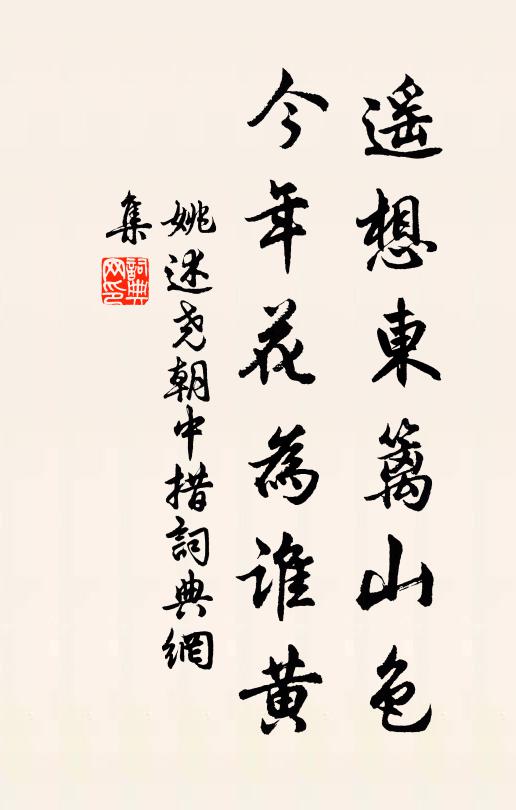 遥想東籬山色
今年花為谁黄
姚述尧朝中措詞典網
集
詞典
网印